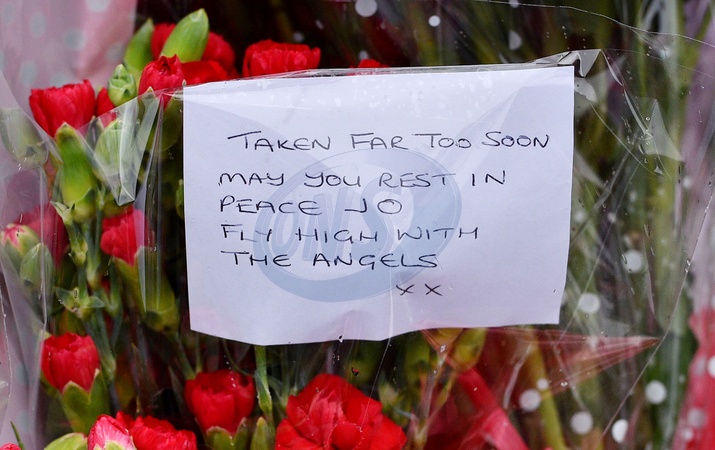 TAKEN FAR TOO SOON
MAY YOU REST IN
PEACE JO
FLY HIGH WITH
THE ANGELS
x x